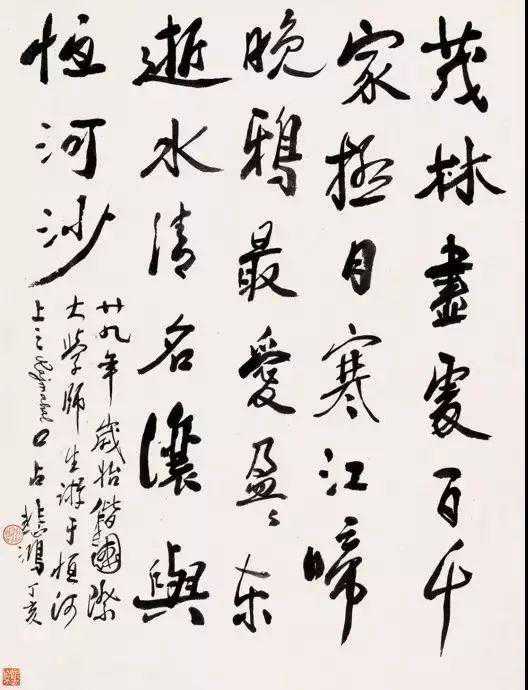 茂林盡處百千
家極目寒江啼
晚鴉最愛盈〻東
逝水清名讓與
恆河沙
廿九年歲始偕國際
大學師生游于恆河
上之Rajmahal口占悲鴻丁亥